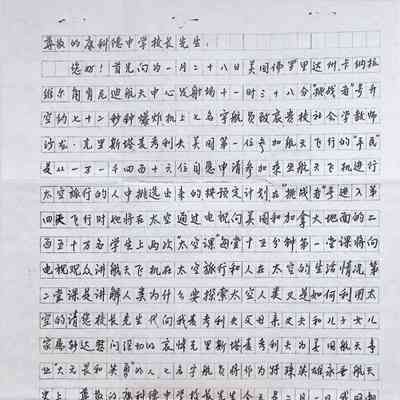 尊敬的康科德中学校长先生：
您好！首先向为一月二十八日美国佛罗里达州卡纳拉
维尔角肯尼迪航天中心发射场十一时三十八分"挑战者"号升
空约七十二秒钟爆炸机上七名宇航员致哀贵校社会学教师
沙龙·克里斯塔麦考利夫美国第一位参加航天飞行的"平民"
是从一万一千四百十六位自愿申请参加乘坐航天飞机进行
太空旅行的人中挑选出来的按预定计划在"挑战者"号进入第
四天飞行时她将在太空通过电视向美国和加拿大地面的二
百五十万名学生上两次"太空课"每堂十五分钟第一堂课将向
电视观众讲航天飞机在太空旅行和人在太空的生活情况第
二堂课是讲解人类为什么要探索太空人类又是如何利用太
空的请您校长先生代向我麦考利夫父母亲丈夫和儿子女儿
家属转达慰问深切的哀悼克里斯塔麦考利夫为美国航天事
业"人之长和英勇"的人之名宇航员将作为特殊英雄永垂航天
史上。尊敬的康科德中学校长先生今天是二月一日我国